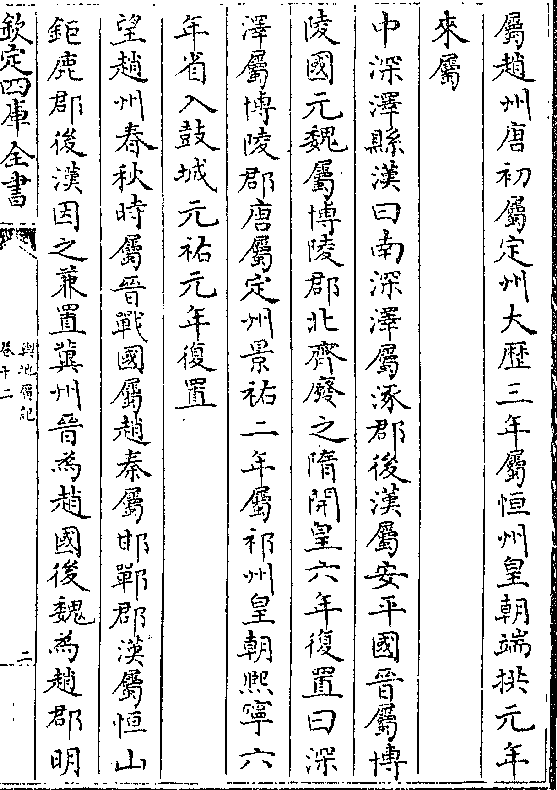 屬趙州唐初屬定州大歴三年屬恒州皇朝端拱元年
來屬
中深澤縣漢曰南深澤屬涿郡後漢屬安平國晉屬博
陵國元魏屬博陵郡北齊廢之隋開皇六年復置曰深
澤屬博陵郡唐屬定州景祐二年屬祁州皇朝熙寧六
年省入鼓城元祐元年復置
望趙州春秋時屬晉戰國屬趙秦屬邯鄲郡漢屬恒山
鉅鹿郡後漢因之兼置冀州晉為趙國後魏為趙郡明
欽定四庫全書
輿地廣記
卷十二
二